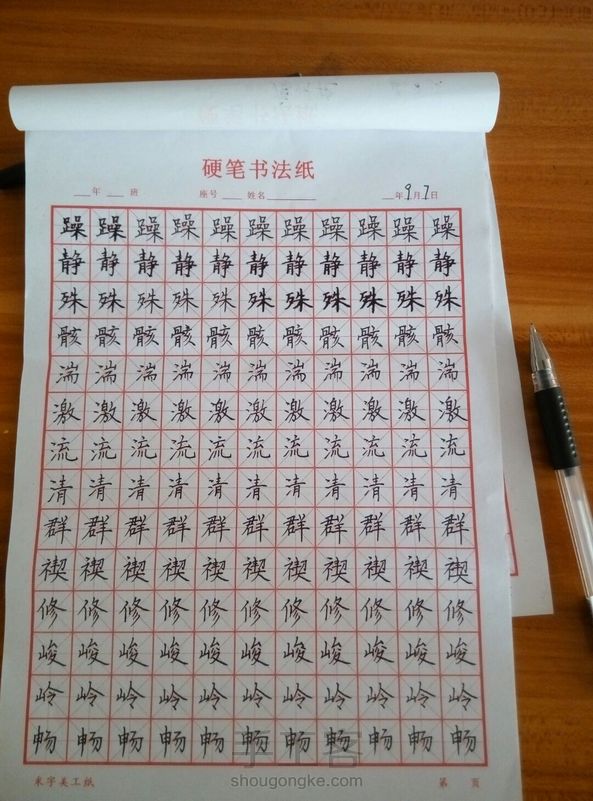 硬笔书法纸
年 班 座号 姓名 年9月7日
躁躁躁躁躁躁躁躁躁躁躁
静静静静静静静静静静静
殊殊殊殊殊殊殊殊殊殊殊
骸骸骸骸骸骸骸骸骸骸骸
湍湍湍湍湍湍湍湍湍湍湍
激激激激激激激激激激激
流流流流流流流流流流流
清清清清清清清清清清清
群群群群群群群群群群群
禊禊禊禊禊禊禊禊禊禊禊
修修修修修修修修修修修
峻峻峻峻峻峻峻峻峻峻峻
岭岭岭岭岭岭岭岭岭岭岭
畅畅畅畅畅畅畅畅畅畅畅
手工客
shougongke.com
米字美工纸 第 页